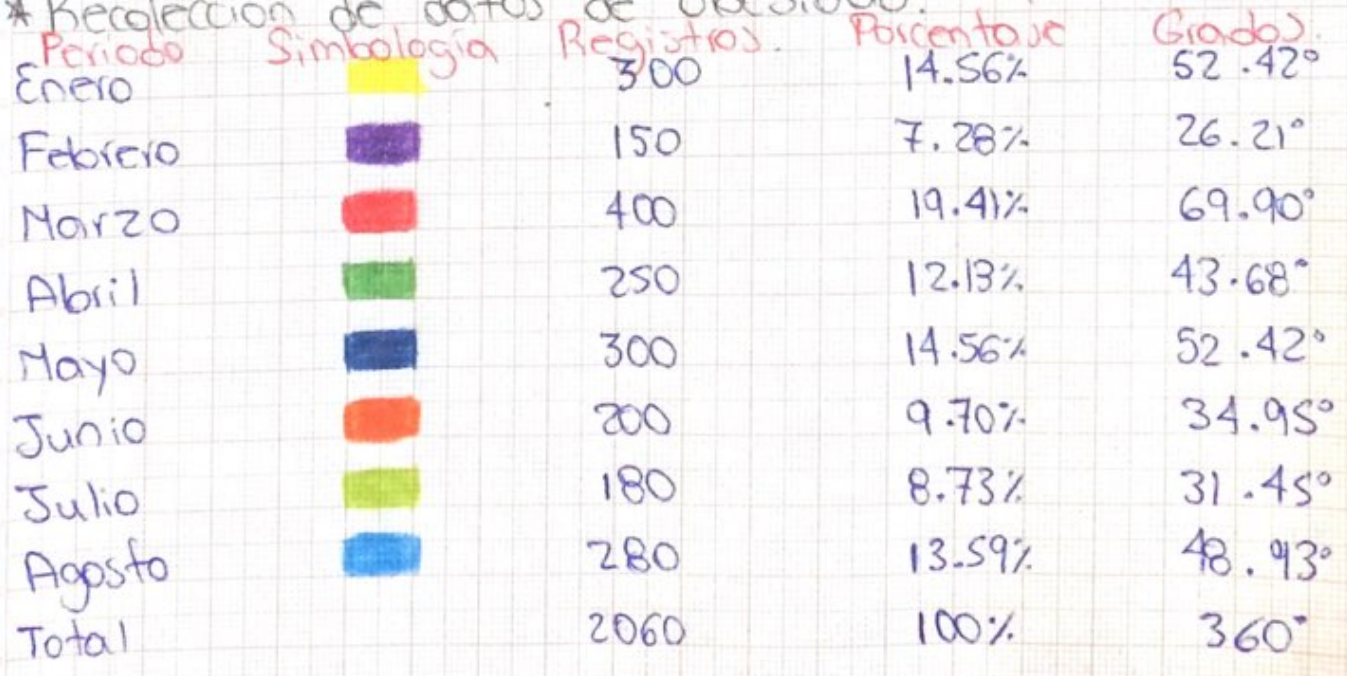 * Recolección de datos de obesidad.
Periodo Simbología Registros. Porcentaje Grados.
Enero 300 14.56% 52.42°
Febrero 150 7.28% 26.21°
Marzo 400 19.41% 69.90°
Abril 250 12.13% 43.68°
Mayo 300 14.56% 52.42°
Junio 200 9.70% 34.95°
Julio 180 8.73% 31.45°
Agosto 280 13.59% 48.93°
Total 2060 100% 360°